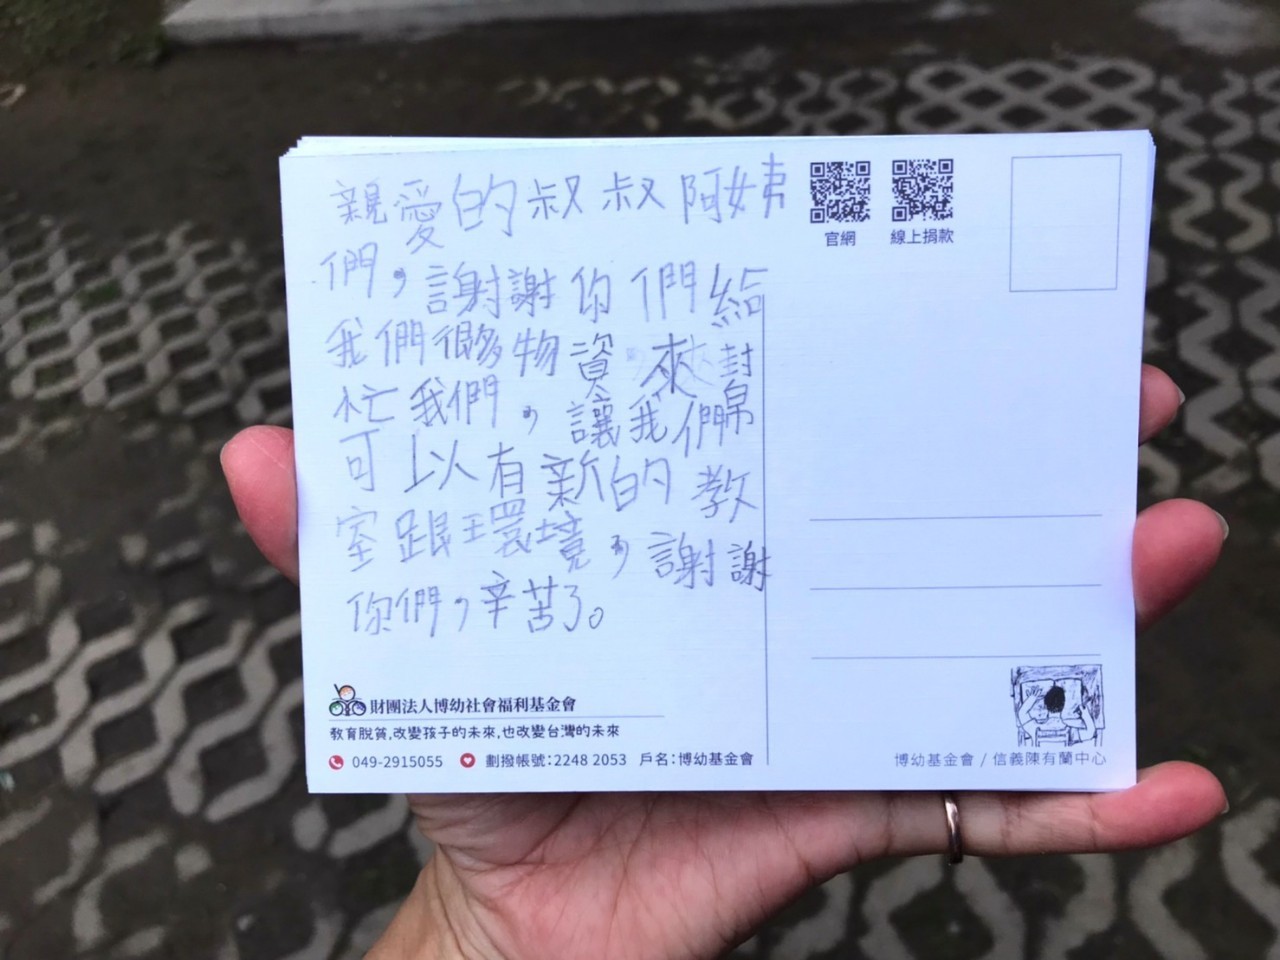 親愛的叔叔阿姨
們，謝謝你們給
我們很多物資來幫
忙我們，讓我們
可以有新的教
室跟環境，謝謝
你們，辛苦了。
官網
線上捐款
財團法人博幼社會福利基金會
教育脫貧,改變孩子的未來,也改變台灣的未來
049-2915055 劃撥帳號:2248 2053 戶名:博幼基金會
博幼基金會 / 信義陳有蘭中心